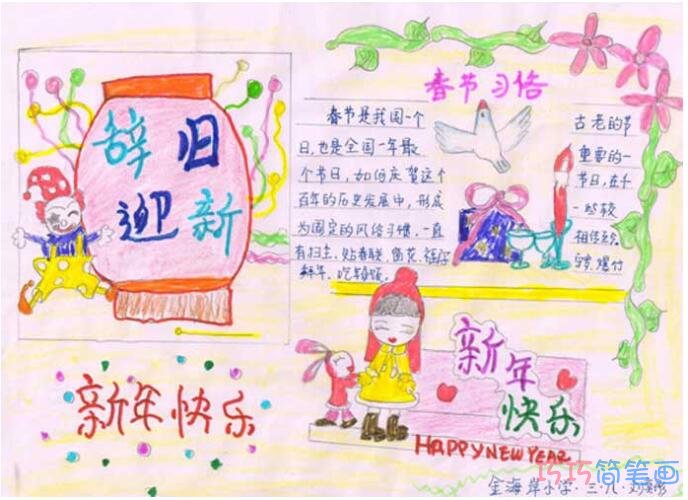 辞旧
迎新
新年快乐
春节习俗
春节是我国一个 古老的节
日,也是全国一年最 重要的一
个节日,如何庆贺这个 节日,在千
百年的历史发展中,形成 一些较
为固定的风俗习惯,一直 相传
有扫尘,贴春联,窗花, 爆竹
拜年、吃
新年
快乐
HAPPY NEW YEAR
金海岸小学·三·八·刘
巧巧简笔画